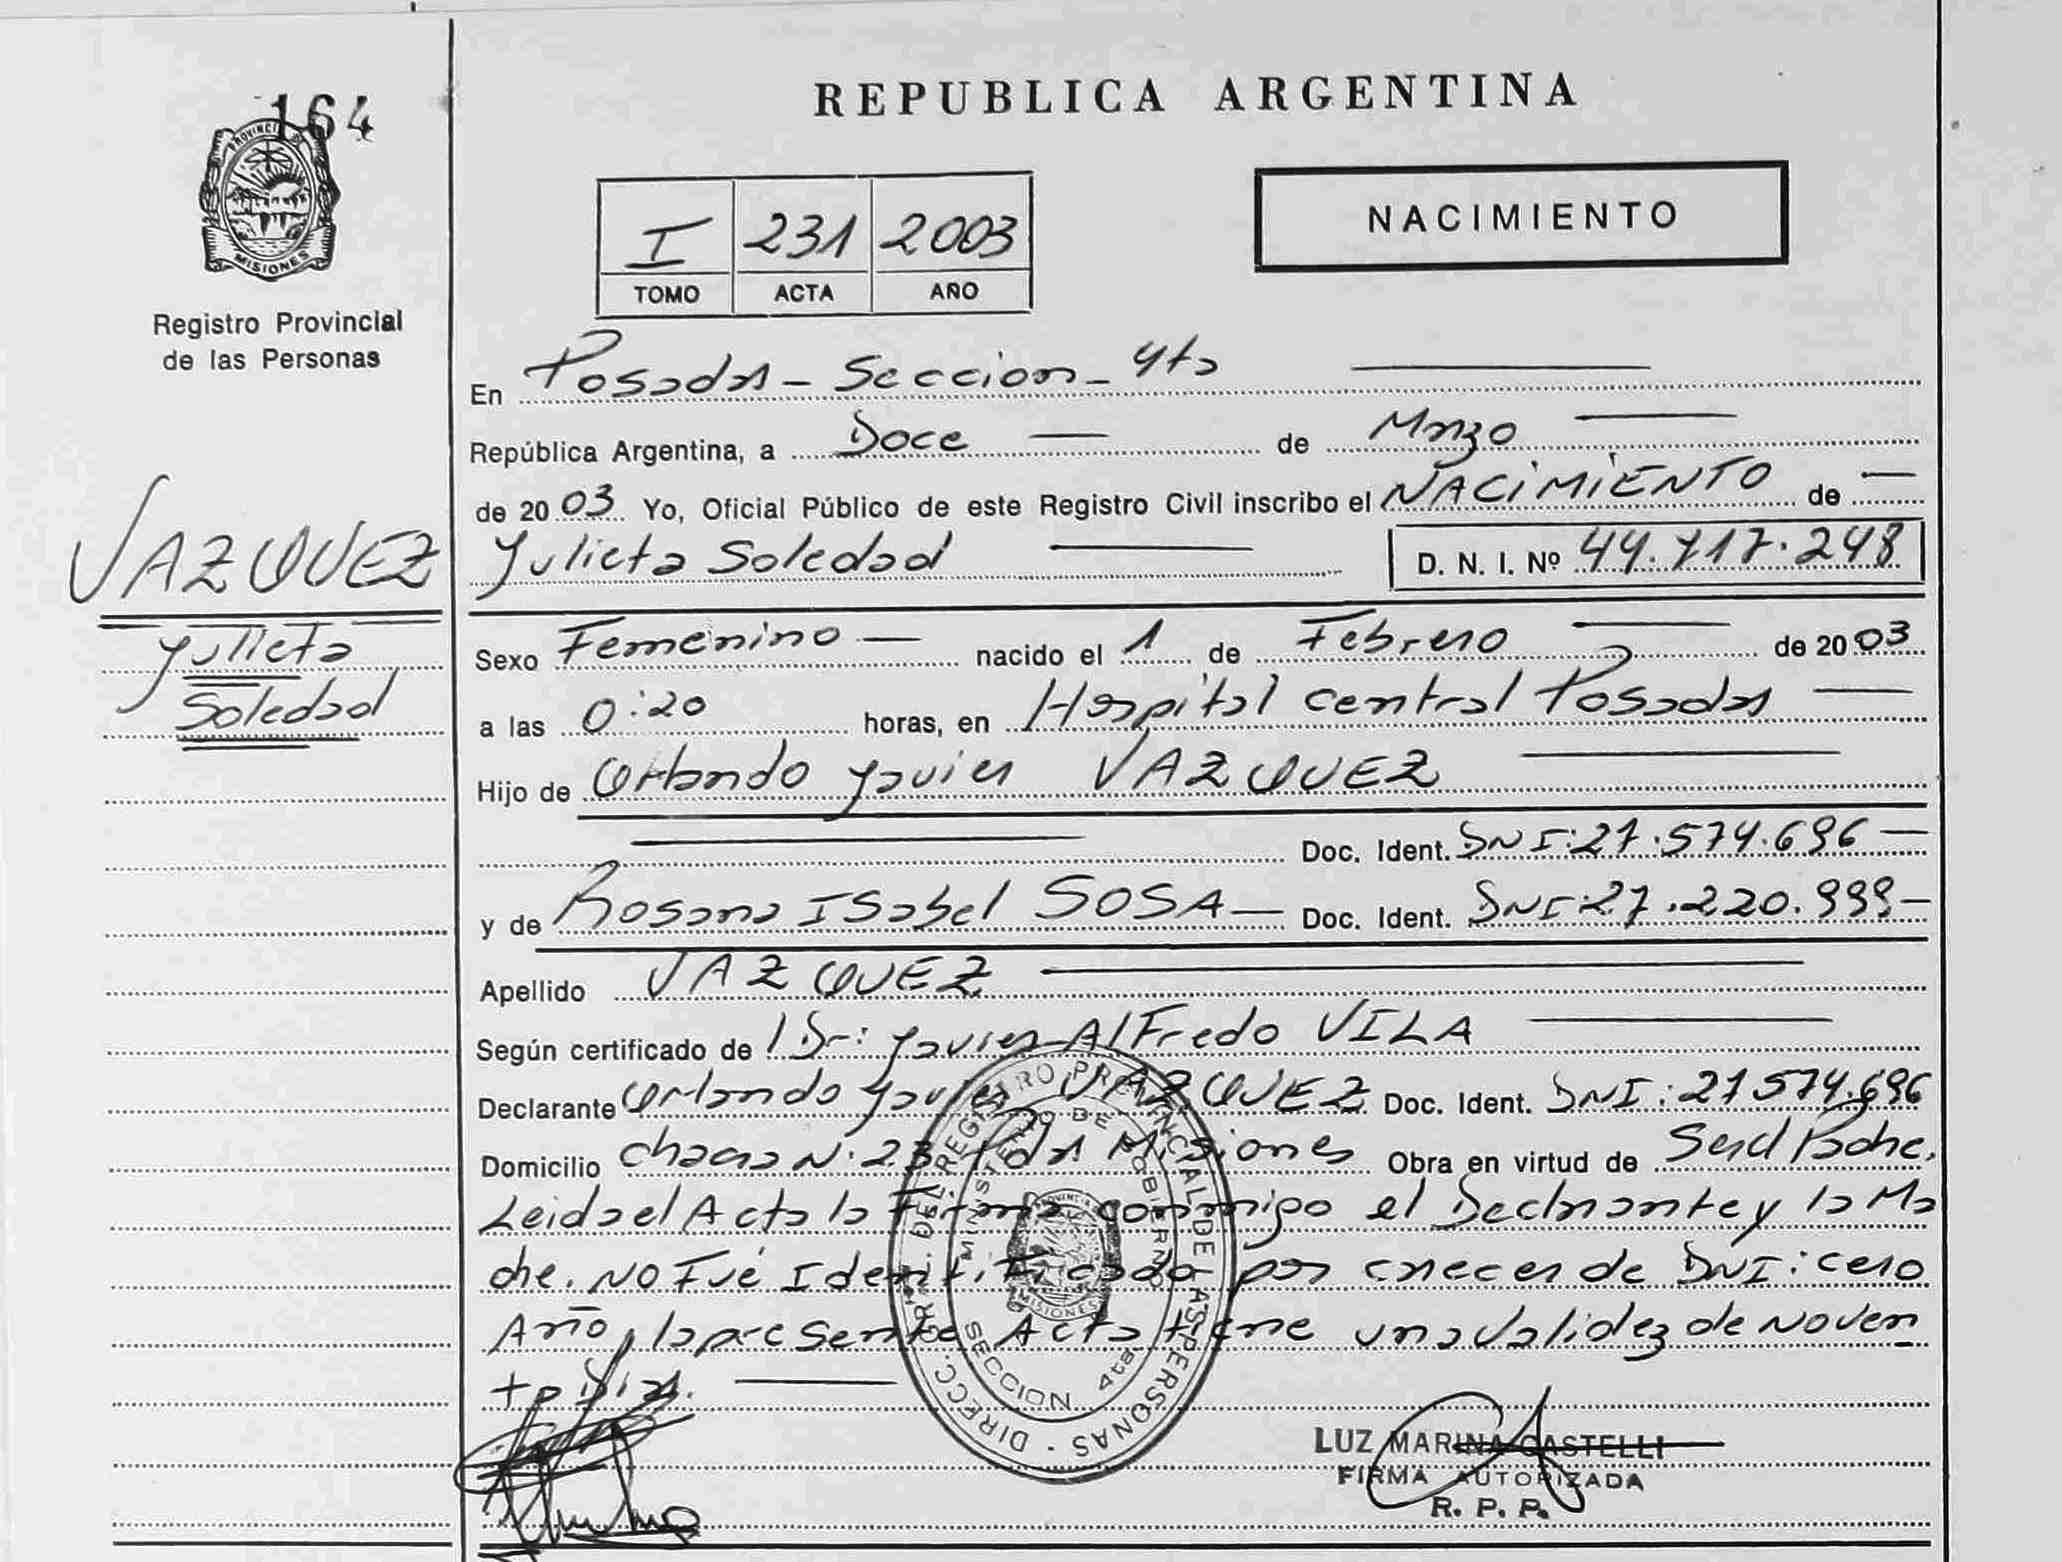 164
PROVINCIA DE
MISIONES
Registro Provincial
de las Personas
REPUBLICA ARGENTINA
I 231 2003
TOMO ACTA AÑO
NACIMIENTO
En Posadas - Seccion - 4ta
República Argentina, a Doce de Marzo
de 2003 Yo, Oficial Público de este Registro Civil inscribo el NACIMIENTO de
Yulieta Soledad D. N. I. Nº 44.717.248
VAZQUEZ
Yulieta
Soledad
Sexo Femenino nacido el 1 de Febrero de 2003
a las 0:20 horas, en Hospital Central Posadas
Hijo de Orlando Yavier VAZQUEZ
Doc. Ident. DNI: 27.574.696
y de Rosana ISabel SOSA Doc. Ident. DNI: 27.220.999
Apellido VAZQUEZ
Según certificado de Dr: Yavier AlFredo VILA
Declarante Orlando Yavier VAZQUEZ Doc. Ident. DNI: 27574.696
Domicilio chacra N. 23 Pdas Misiones Obra en virtud de
Leida el Acta la Firma conmigo el Declarante y la Ma
dre. NO Fué Identificada por carecer de DNI: cero
Año, la presente Acta tiene una validez de Noven
ta Dias.
DIRECC. GRAL. DEL REGISTRO PROVINCIAL DE LAS PERSONAS
MINISTERIO DE GOBIERNO
PROVINCIA
MISIONES
SECCION 4ta.
LUZ MARINA CASTELLI
FIRMA AUTORIZADA
R. P. P.